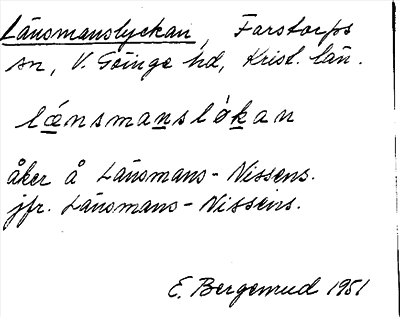 Länsmanslyckan, Farstorps
sn, V. Göinge hd, Krist. län.
lænsmansløkan
åker å Länsmans-Nissens.
jfr. Länsmans-Nissens.
E. Bergemud 1951